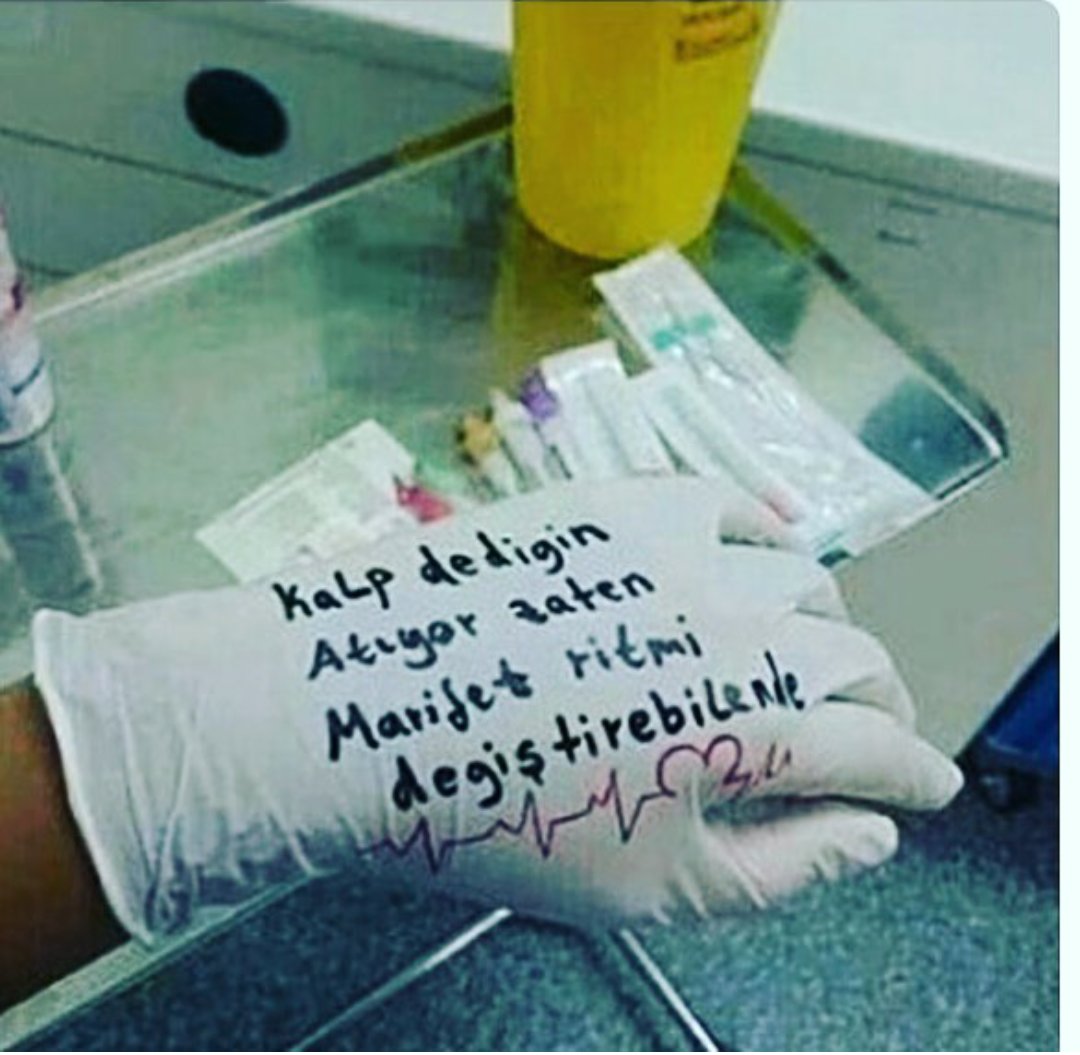 Kalp dedigin
Atıyor zaten
Marifet ritmi
degiştirebilende